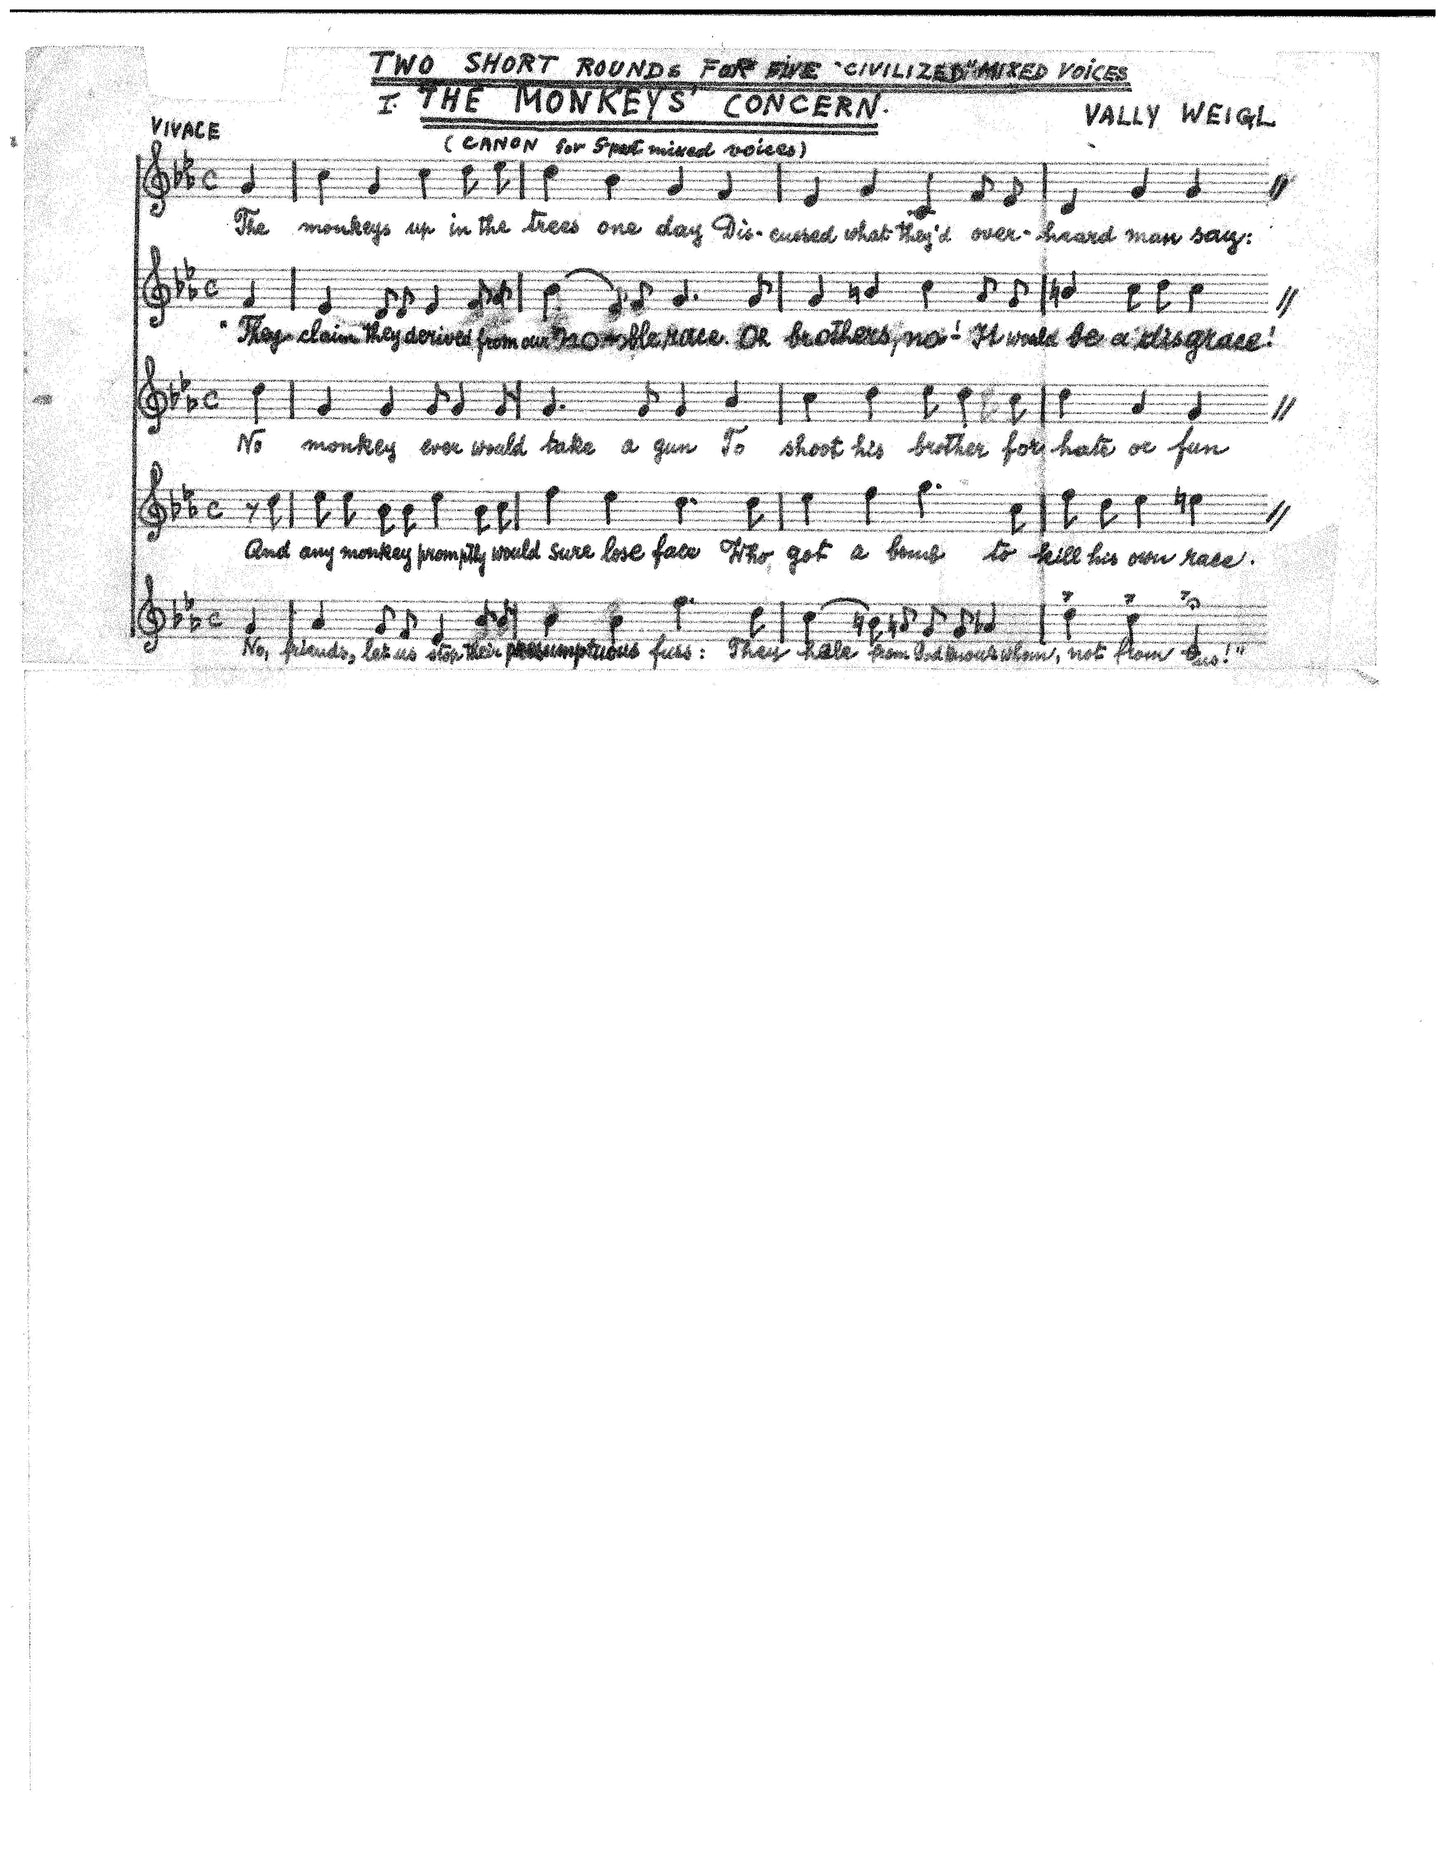 TWO SHORT ROUNDS FOR FIVE "CIVILIZED" MIXED VOICES
I. THE MONKEYS' CONCERN.
VALLY WEIGL
VIVACE
(CANON for 5 part mixed voices)
The monkeys up in the trees one day Dis-cussed what they'd over-heard man say:
"They claim they derived from our no-ble race. Oh brothers, no! It would be a disgrace!
No monkey ever would take a gun To shoot his brother for hate or fun
And any monkey promptly would sure lose face Who got a bomb to kill his own race.
No, friends, let us stop their presumptuous fuss: They hale from God knows whom, not from us!"